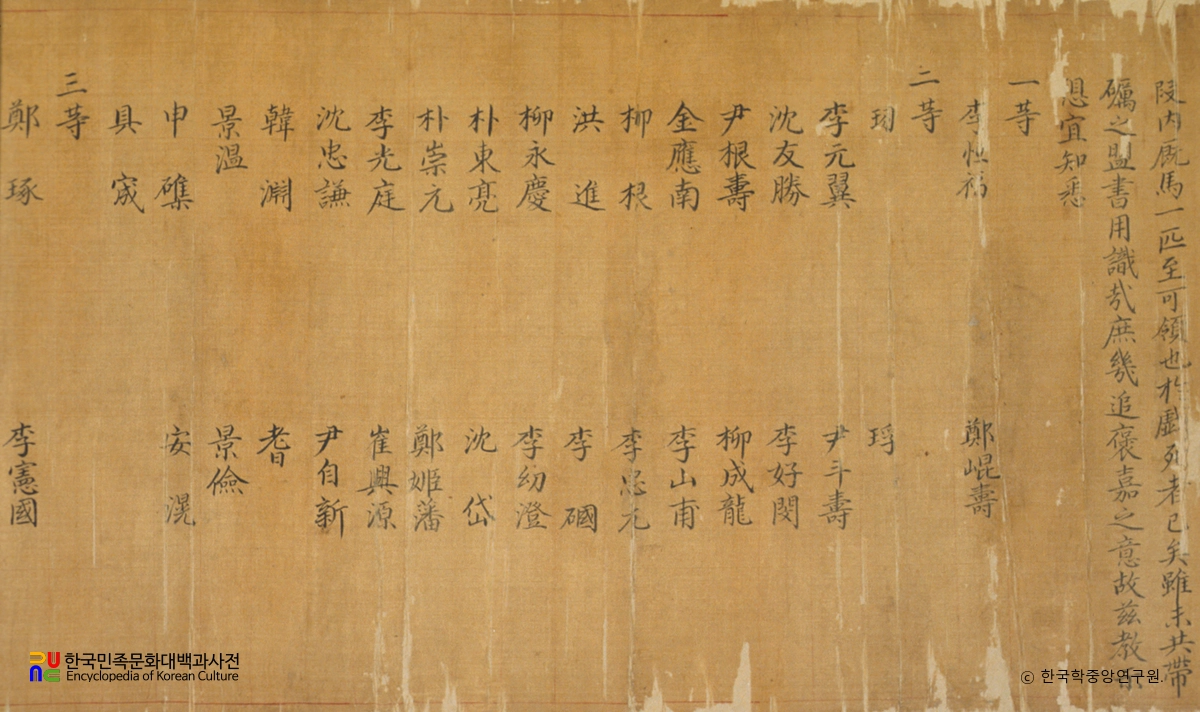 段內廐馬一匹至可領也於戲死者已矣雖未共帶
礪之盟書用識哉庶幾追褒嘉之意故玆敎示
想宜知悉
一等
李恒福 鄭崐壽
二等
珝 琈
李元翼 尹斗壽
沈友勝 李好閔
尹根壽 柳成龍
金應南 李山甫
柳根 李忠元
洪進 李𥕏
柳永慶 李幼澄
朴東亮 沈岱
朴崇元 鄭姬藩
李光庭 崔興源
沈忠謙 尹自新
韓淵 耆
景溫 景儉
申磼 安滉
具宬
三等
鄭琢 李憲國
한국민족문화대백과사전
Encyclopedia of Korean Culture
ⓒ 한국학중앙연구원.